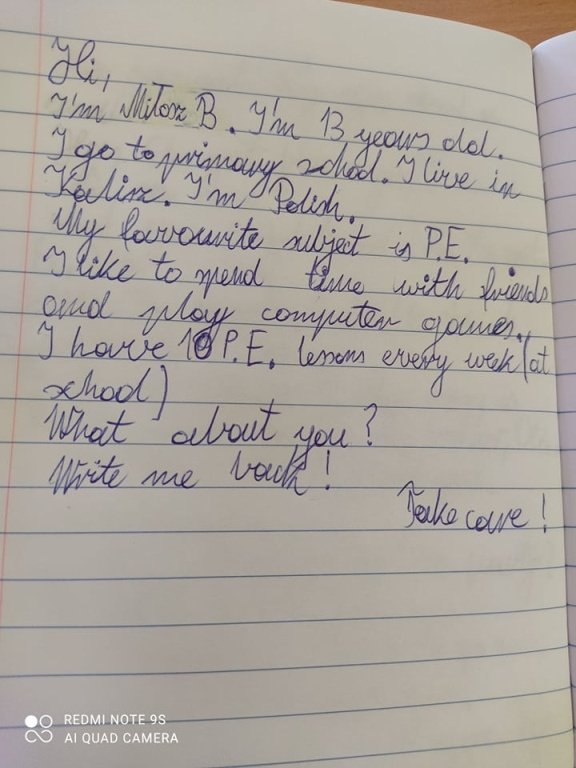 Hi,
I'm Miłosz B. I'm 13 years old.
I go to primary school. I live in
Kalisz. I'm Polish.
My favourite subject is P.E.
I like to spend time with friends
and play computer games.
I have 10 P.E. lessons every week (at
school)
What about you?
Write me back!
Take care!
REDMI NOTE 9S
AI QUAD CAMERA